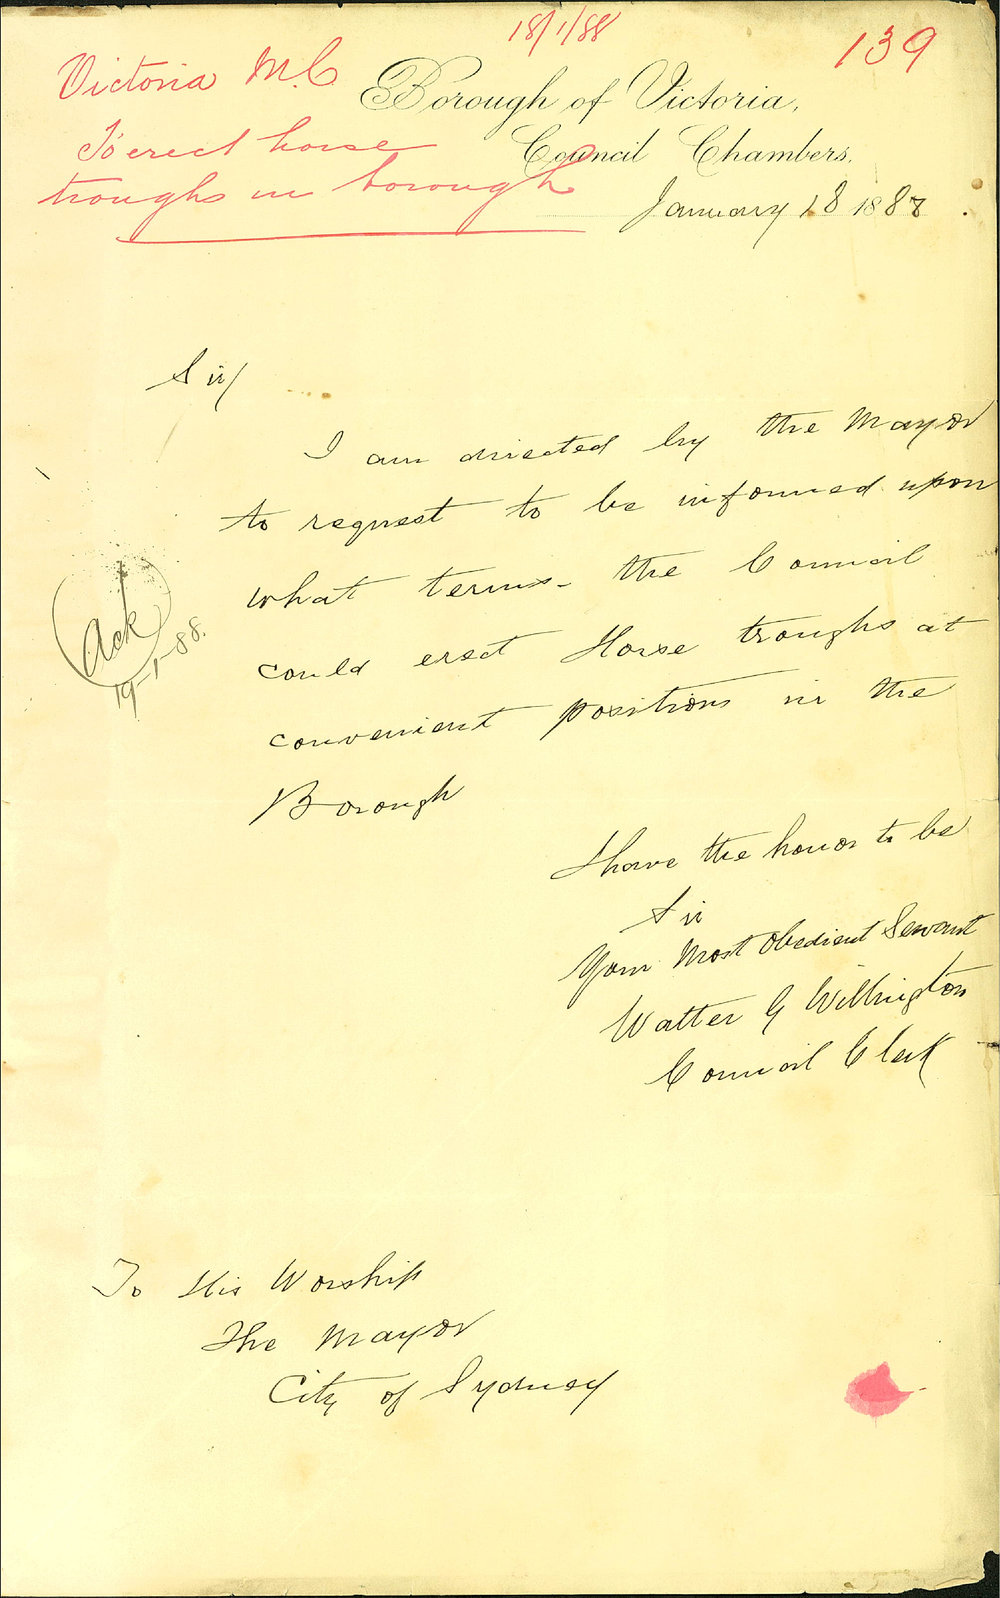 18/1/88
139
Victoria M.C
To erect horse
troughs in borough
Borough of Victoria,
Council Chambers,
January 18 1888
Sir/
I am directed by the Mayor
to request to be informed upon
what terms the Council
could erect Horse troughs at
convenient positions in the
Borough
Ack
19-1-88.
I have the honor to be
Sir
Your Most Obedient Servant
Walter G Withington
Council Clerk
To His Worship
The Mayor
City of Sydney